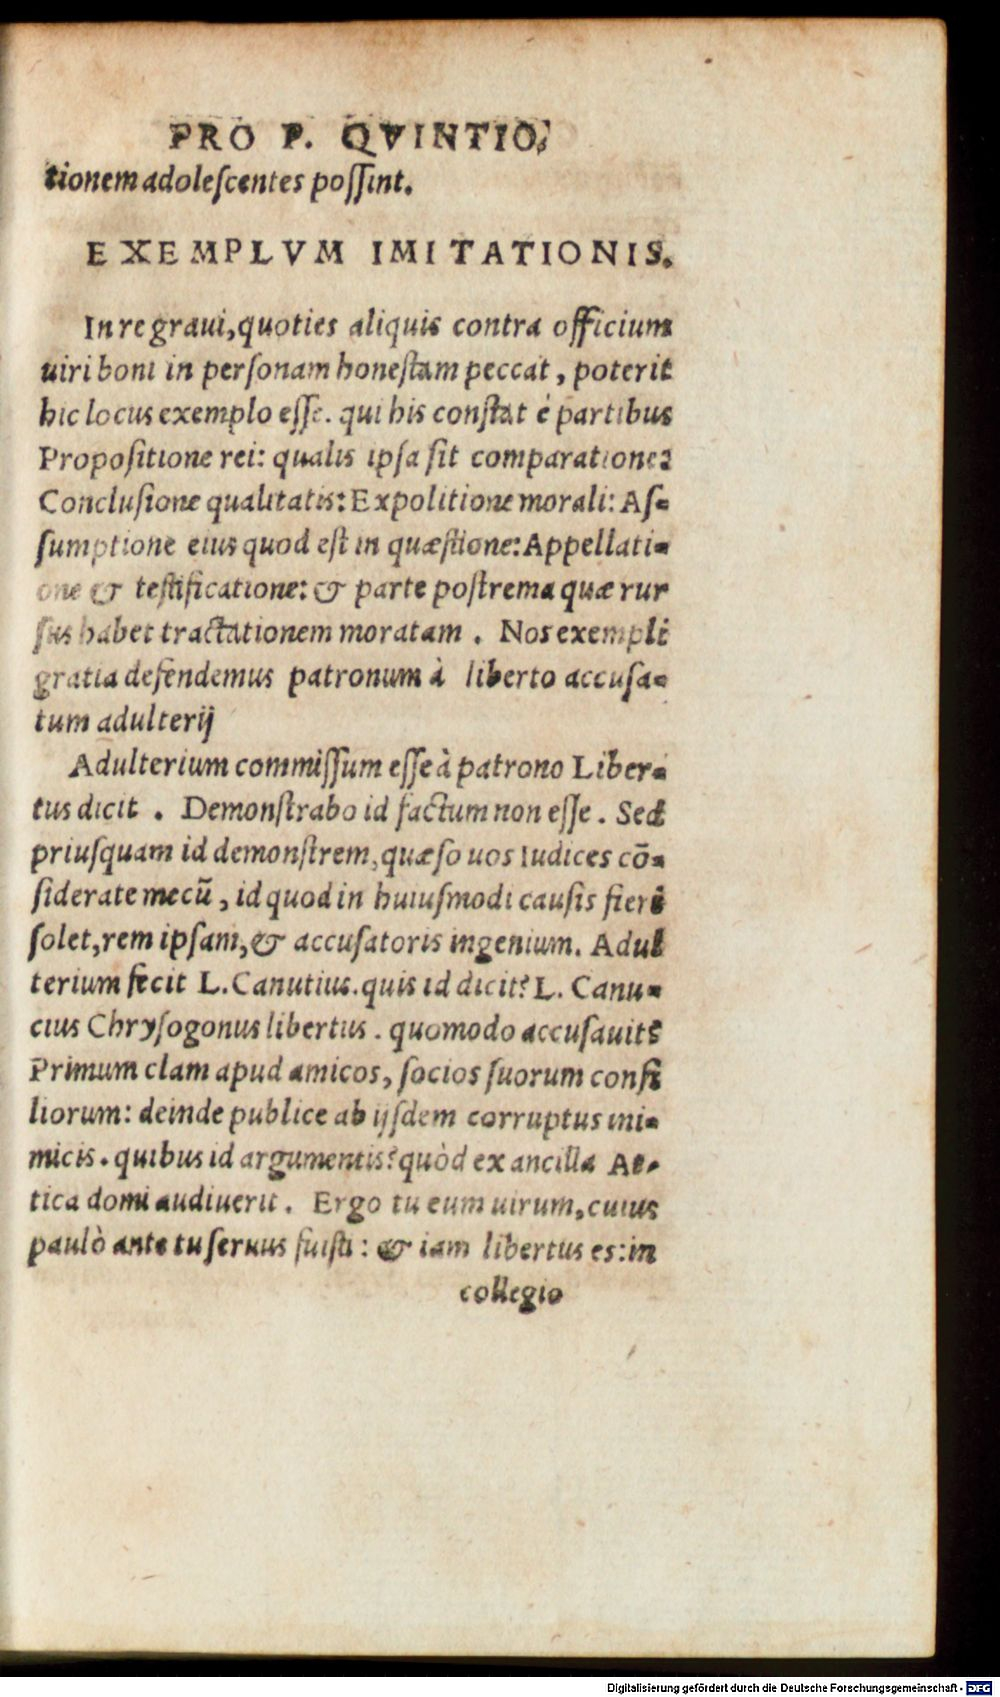 PRO P. QVINTIO.
tionem adoleſcentes poſſint.
EXEMPLVM IMITATIONIS.
In re graui, quoties aliquis contra officium
uiri boni in perſonam honeſtam peccat, poterit
hic locus exemplo eſſe. qui his conſtat è partibus
Propoſitione rei: qualis ipſa ſit comparatione:
Concluſione qualitatis: Expolitione morali: Aſ-
ſumptione eius quod eſt in quæſtione: Appellati-
one & teſtificatione: & parte poſtrema quæ rur
ſus habet tractationem moratam. Nos exempli
gratia defendemus patronum à liberto accuſa-
tum adulterij
Adulterium commiſſum eſſe à patrono Liber-
tus dicit. Demonſtrabo id factum non eſſe. Sed
priuſquam id demonſtrem, quæſo uos Iudices cõ-
ſiderate mecũ, id quod in huiuſmodi cauſis fieri
ſolet, rem ipſam, & accuſatoris ingenium. Adul
terium fecit L. Canutius. quis id dicit? L. Canu-
cius Chryſogonus libertus. quomodo accuſauit?
Primum clam apud amicos, ſocios ſuorum conſi
liorum: deinde publice ab ijſdem corruptus ini-
micis. quibus id argumentis? quòd ex ancilla At-
tica domi audiuerit. Ergo tu eum uirum, cuius
paulò ante tu ſeruus fuiſti: & iam libertus es: in
collegio
Digitalisierung gefördert durch die Deutsche Forschungsgemeinschaft - DFG